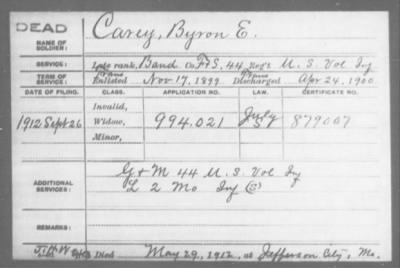 DEAD
NAME OF SOLDIER: Carey, Byron E.
SERVICE: Late rank, Band Co. F&S, 44 Reg't U. S. Vol Inf
TERM OF SERVICE: Enlisted Nov 17, 1899 Discharged Apr 24, 1900
DATE OF FILING. CLASS. APPLICATION NO. LAW. CERTIFICATE NO.
Invalid,
1912 Sept 26 Widow, 994.021 July 5 879007
Minor,
ADDITIONAL SERVICES: G & M 44 U. S. Vol Inf
L 2 Mo Inf
REMARKS:
Died May 29, 1912, at Jefferson City, Mo.